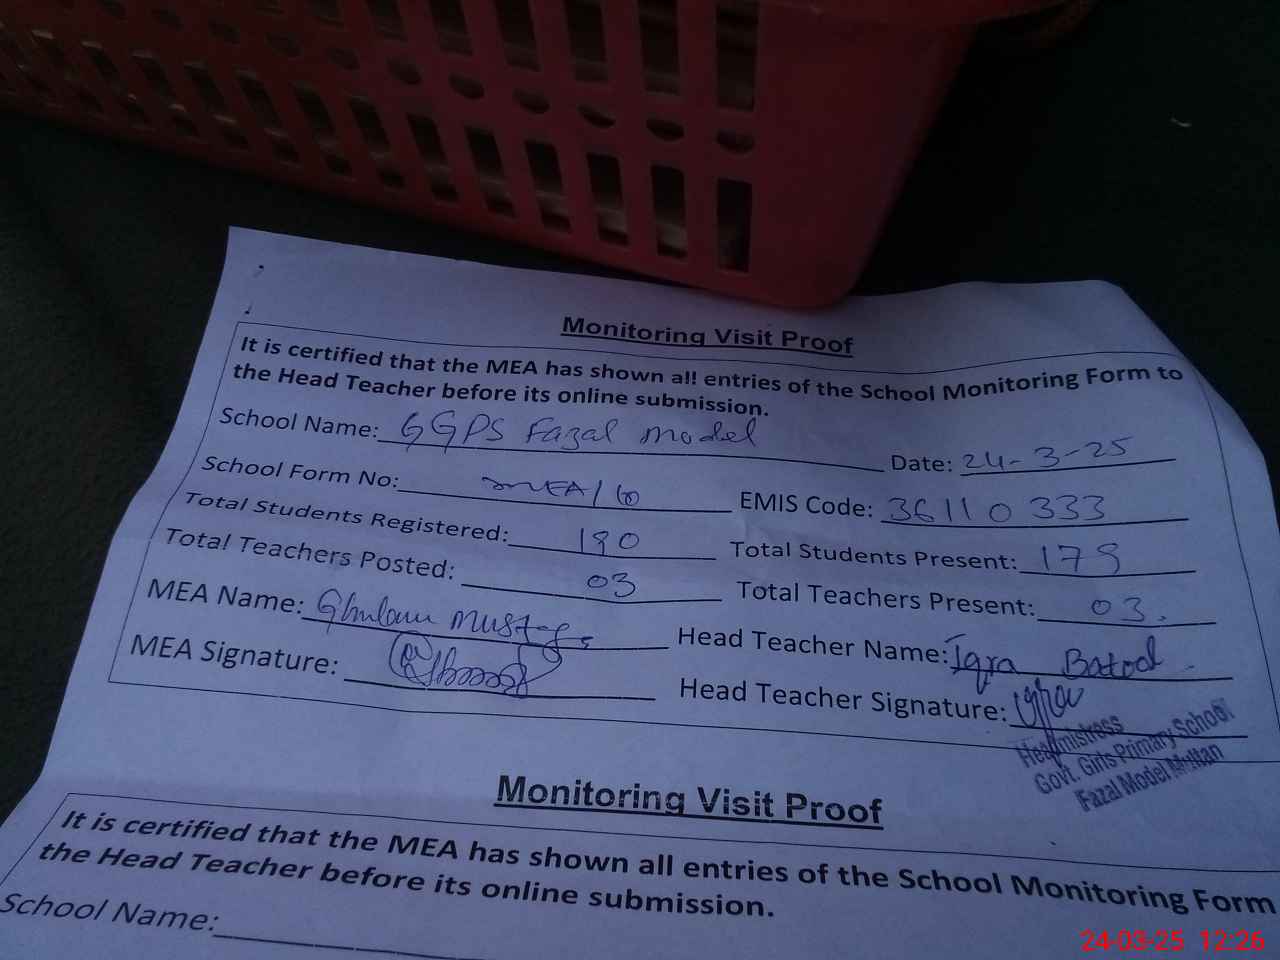 Monitoring Visit Proof
It is certified that the MEA has shown all entries of the School Monitoring Form to
the Head Teacher before its online submission.
School Name: GGPS Fazal model
Date: 24-3-25
School Form No: MEA/10
EMIS Code: 36110333
Total Students Registered: 190
Total Students Present: 175
Total Teachers Posted: 03
Total Teachers Present: 03.
MEA Name: Ghulam Mustafa
Head Teacher Name: Iqra Batool
MEA Signature:
Head Teacher Signature:
Headmistress
Govt. Girls Primary School
Fazal Model Multan
Monitoring Visit Proof
It is certified that the MEA has shown all entries of the School Monitoring Form
the Head Teacher before its online submission.
School Name:
24-03-25 12:26